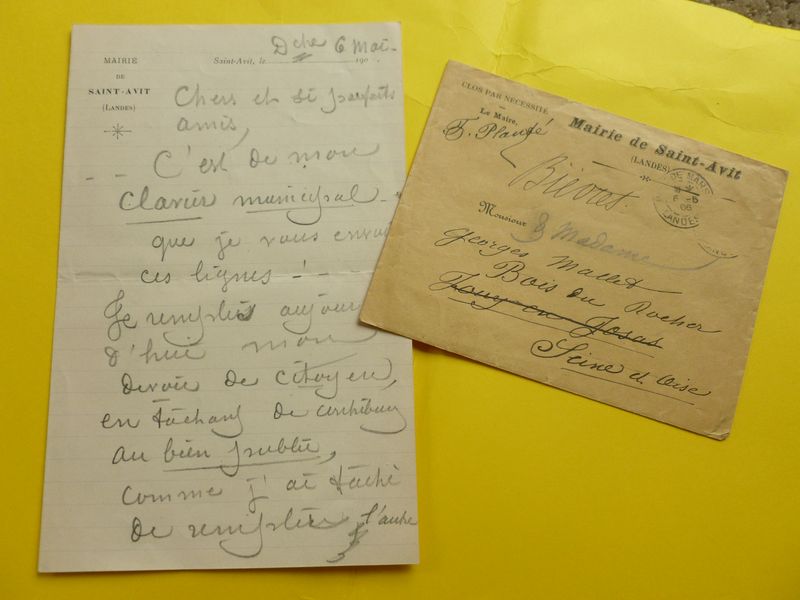 MAIRIE
DE
SAINT-AVIT
(LANDES)
Dche 6 Mai -
Saint-Avit, le 190
Chers et si parfaits
amis,
C'est de mon
clavier municipal -
que je vous envoie
ces lignes ! - -
Je remplis aujour
d'hui mon
devoir de citoyen,
en tâchant de contribuer
au bien public,
comme j'ai tâché
de remplir l'autre
CLOS PAR NÉCESSITÉ
Le Maire,
F. Planté
Mairie de Saint-Avit
(LANDES)
DE MARSAN
6 -5
06
LANDES
Bièvres.
Monsieur & Madame
Georges Mallet
Bois du Rocher
Jouy-en-Josas
Seine et Oise